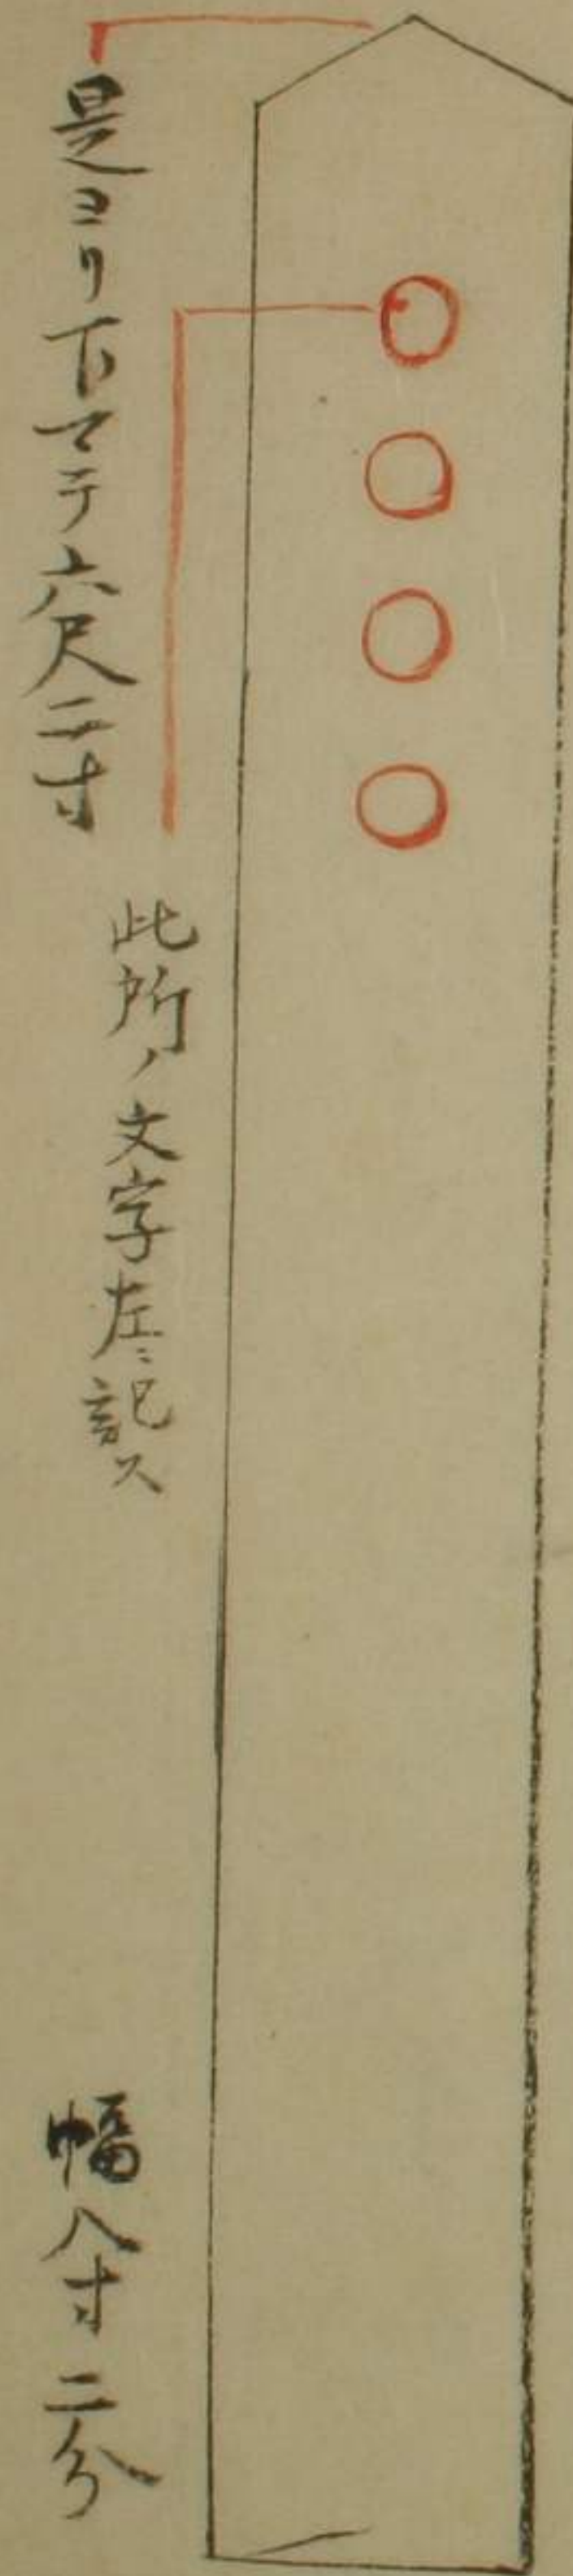 是ヨリ下マテ六尺二寸
此所ノ文字左ニ記ス
幅八寸二分